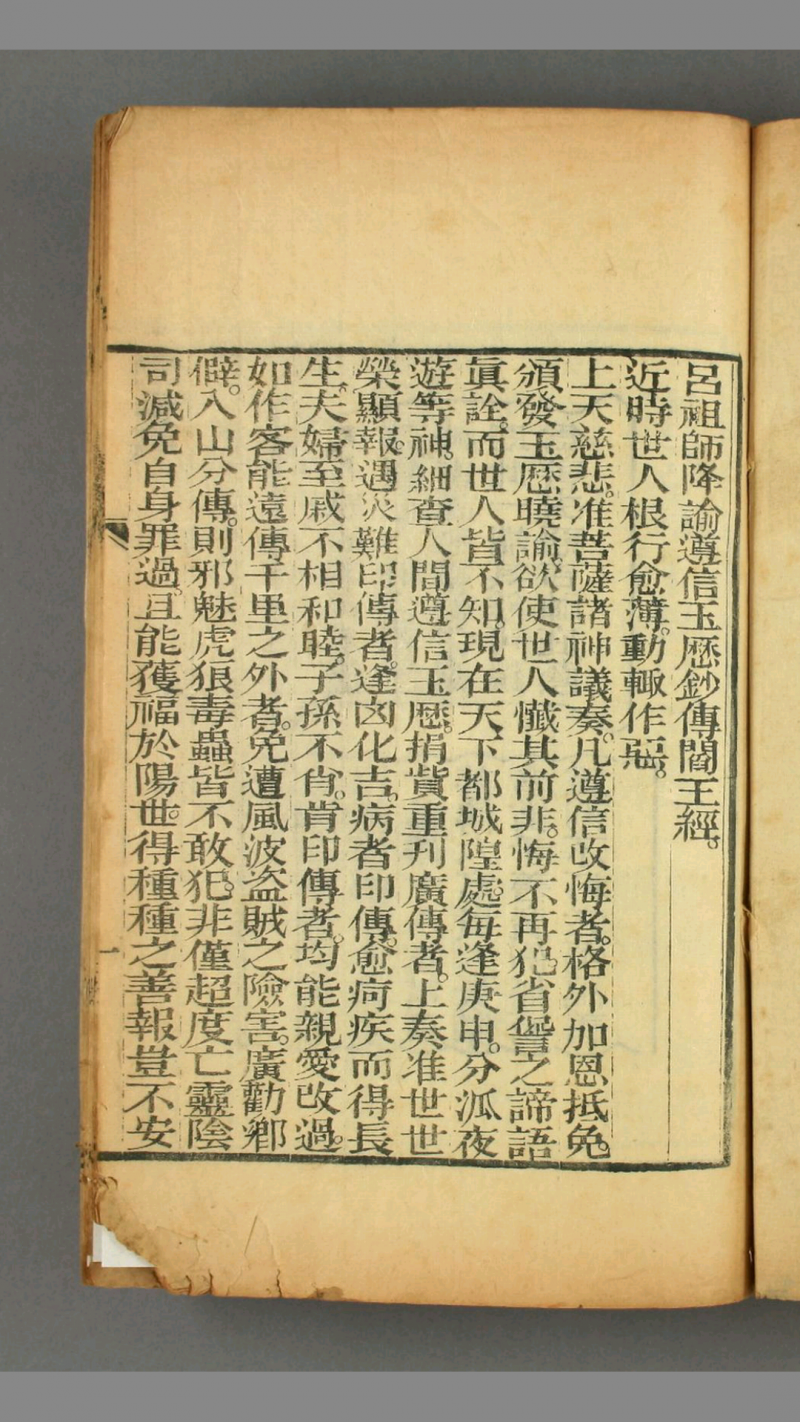 呂祖師降諭遵信玉歷鈔傳閻王經。
近時世人根行愈薄。動輙作惡。
上天慈悲。准菩薩諸神議奏。凡遵信改悔者。格外加恩抵免。
頒發玉歷曉諭。欲使世人懺其前非。悔不再犯。省訾之諦語
眞詮。而世人皆不知。現在天下都城隍處。每逢庚申。分派夜
遊等神。細查人間遵信玉歷。捐貲重刋廣傳者。上奏准世世
榮顯報。遇災難印傳者。逢凶化吉。病者印傳。愈疴疾而得長
生。夫婦至戚不相和睦。子孫不肖。肯印傳者。均能親愛改過。
如作客能遠傳千里之外者。免遭風波盜賊之險害。廣勸鄉
僻。入山分傳。則邪魅虎狼毒蟲皆不敢犯。非僅超度亡靈陰
司減免自身罪過。且能獲福於陽世。得種種之善報豈不安
一